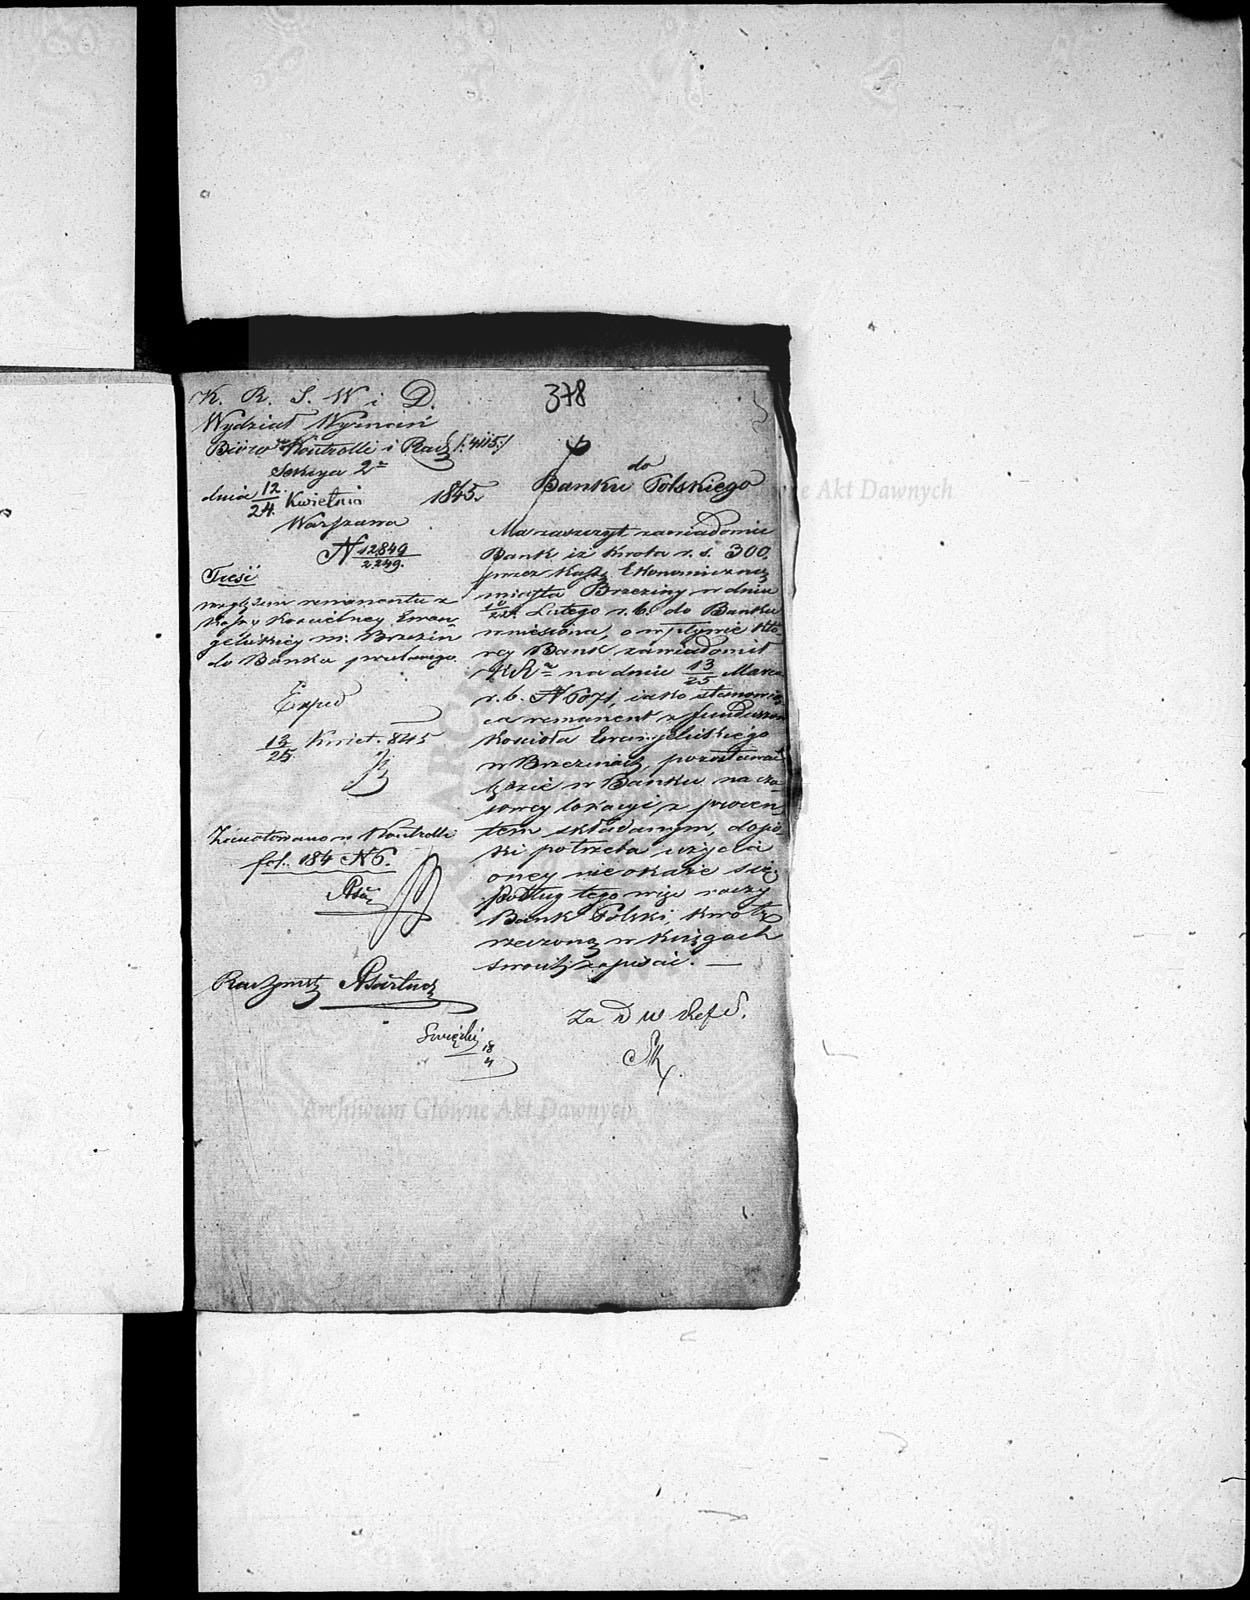 K. R. S. W i D.
Wydział Wyznań
Biuro Kontrolli i Rach
Sekcya 2ª
dnia 12/24 Kwietnia 1845.
Warszawa
N 12849/2249.
Treść
względem remanentu z
Kasy Kościelney Ewan-
gelickiey m: Brzezin
do Banku przelanego
Exped
13/25 Kwiet. 845
Zanotowano w Kontrolli
fol. 184 N 6.
378
do
Banku Polskiego
Ma zaszczyt zawiadomić
Bank iż kwota r. s. 300.
przez Kassę Ekonomiczną
miasta Brzeziny w dniu
Lutego r. b. do Banku
wniesiona, o wpływie któ-
rey Bank zawiadomił
KRª na dniu 13/25 Marca
r. b. N 6071, iako stanowią-
ca remanent z funduszów
Kościoła Ewangelickiego
w Brzezinach, pozostawać
będzie w Banku na cza-
sowey lokacyi z procen-
tem składanym, dopó-
ki potrzeba użycia
oney nie okaże się,
podług tego więc raczy
Bank Polski, kwotę
rzeczoną w księgach
swoich zapisać. —
Za D W
Archiwum Główne Akt Dawnych